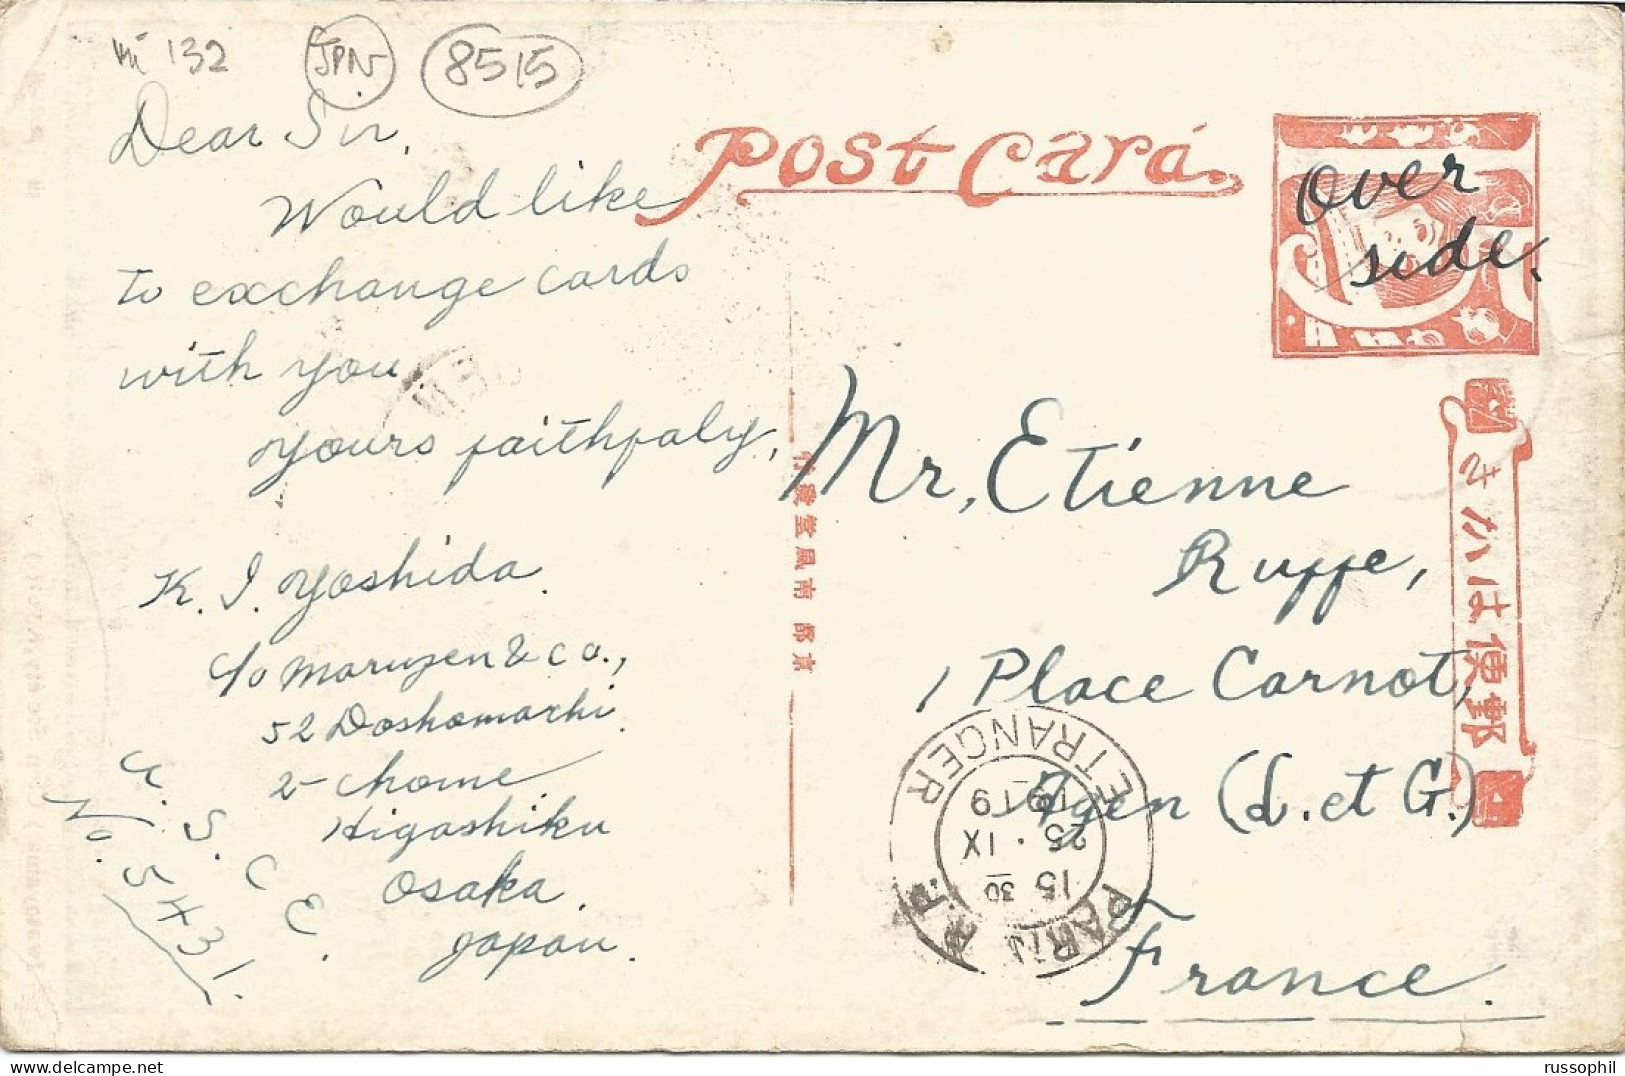 Mi 132
JPN
8515
Dear Sir,
Would like
to exchange cards
with you.
yours faithfaly,
K. I. Yoshida.
c/o Maruzen & Co.,
52 Doshomachi
2-chome.
Higashiku
Osaka.
Japan.
U.S.C.E.
No. 5431.
Post Card.
Over
side.
Mr, Etienne
Ruffe,
1 Place Carnot,
Agen (L. et G.)
France.
PARIS R.P.
ETRANGER
15 30
25 · IX
1919
きがは便郵
京都南風堂
russophil